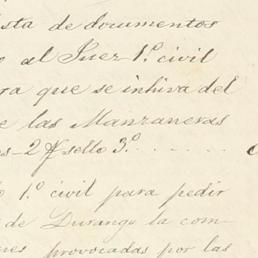 sta de documentos
o al Juez 1.º civil
ra que se inhiva del
e las Manzaneras
s - 2 ff sello 3.º . . . . . .
o 1.º civil para pedir
de Durango la com-
nes provocadas por las